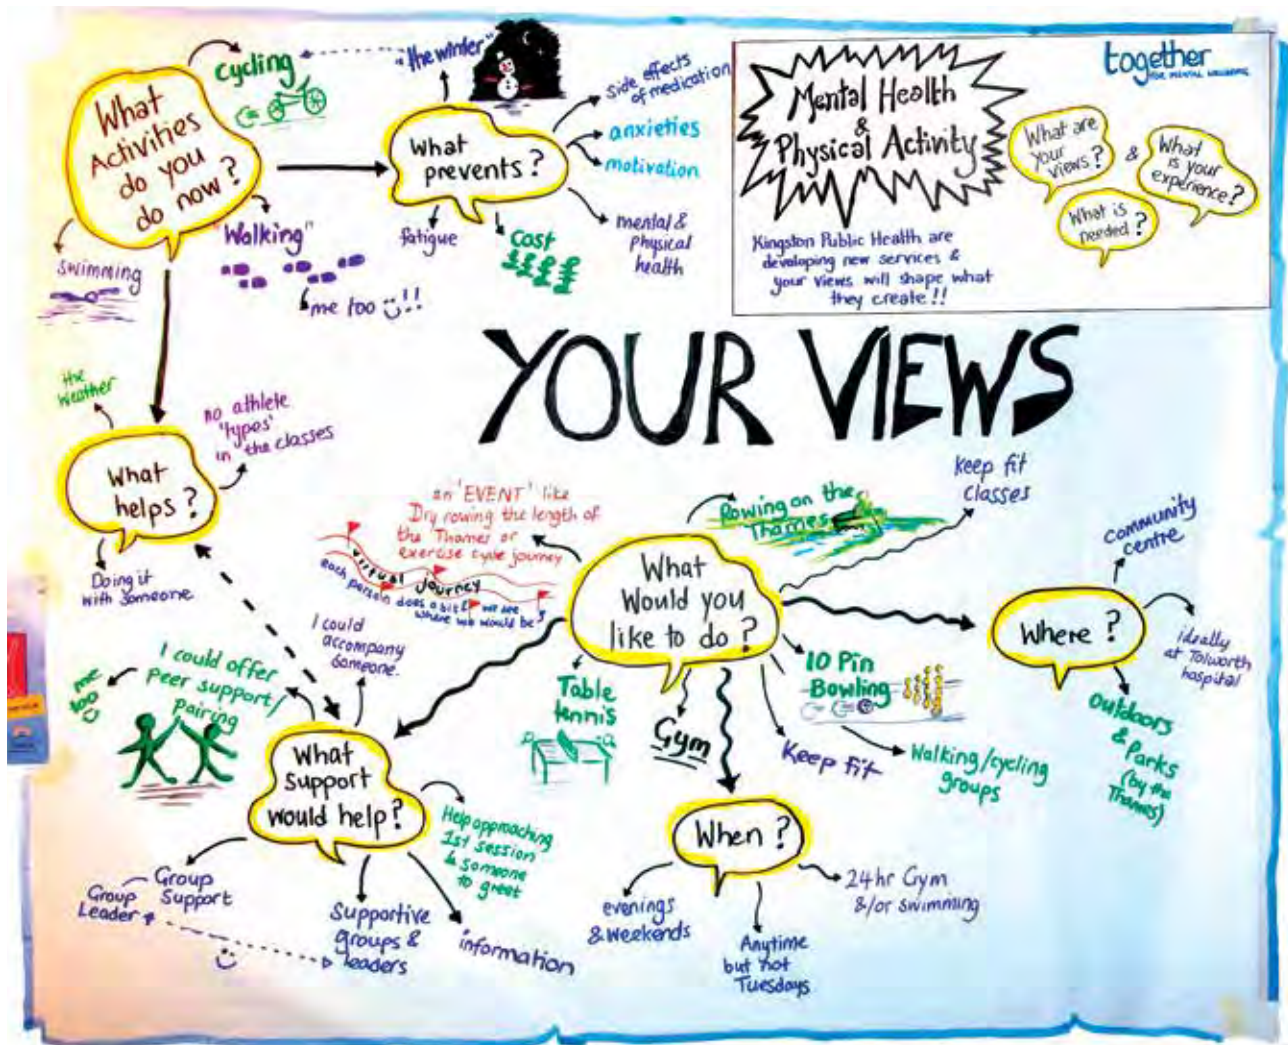 What
Activities
do you
do now?
Cycling
"the winter"
What
prevents?
side effects
of medication
anxieties
motivation
mental &
physical
health
Cost
££££
fatigue
"Walking"
me too !!
swimming
Mental Health
&
Physical Activity
together
FOR MENTAL WELLBEING
What are
your
views?
&
What
is your
experience?
What is
needed?
Kingston Public Health are
developing new services &
your views will shape what
they create!!
YOUR VIEWS
the
weather
no athlete
'types'
in the classes
What
helps?
Doing it
with someone
an 'EVENT' like
Dry rowing the length of
the Thames or
exercise cycle journey
virtual journey
each person does a bit &
we see
where we would be
Rowing on the
Thames
Keep fit
classes
What
Would you
like to do?
Table
tennis
Gym
Keep fit
10 Pin
Bowling
Walking/cycling
groups
Where?
community
centre
ideally
at Tolworth
hospital
Outdoors
& Parks
(by the
Thames)
When?
evenings
& weekends
Anytime
but not
Tuesdays
24hr Gym
&/or swimming
I could
accompany
someone.
I could offer
peer support/
pairing
me
too
What
support
would help?
Help approaching
1st session
& someone
to greet
Group
Support
Group
Leader
Supportive
groups &
leaders
information